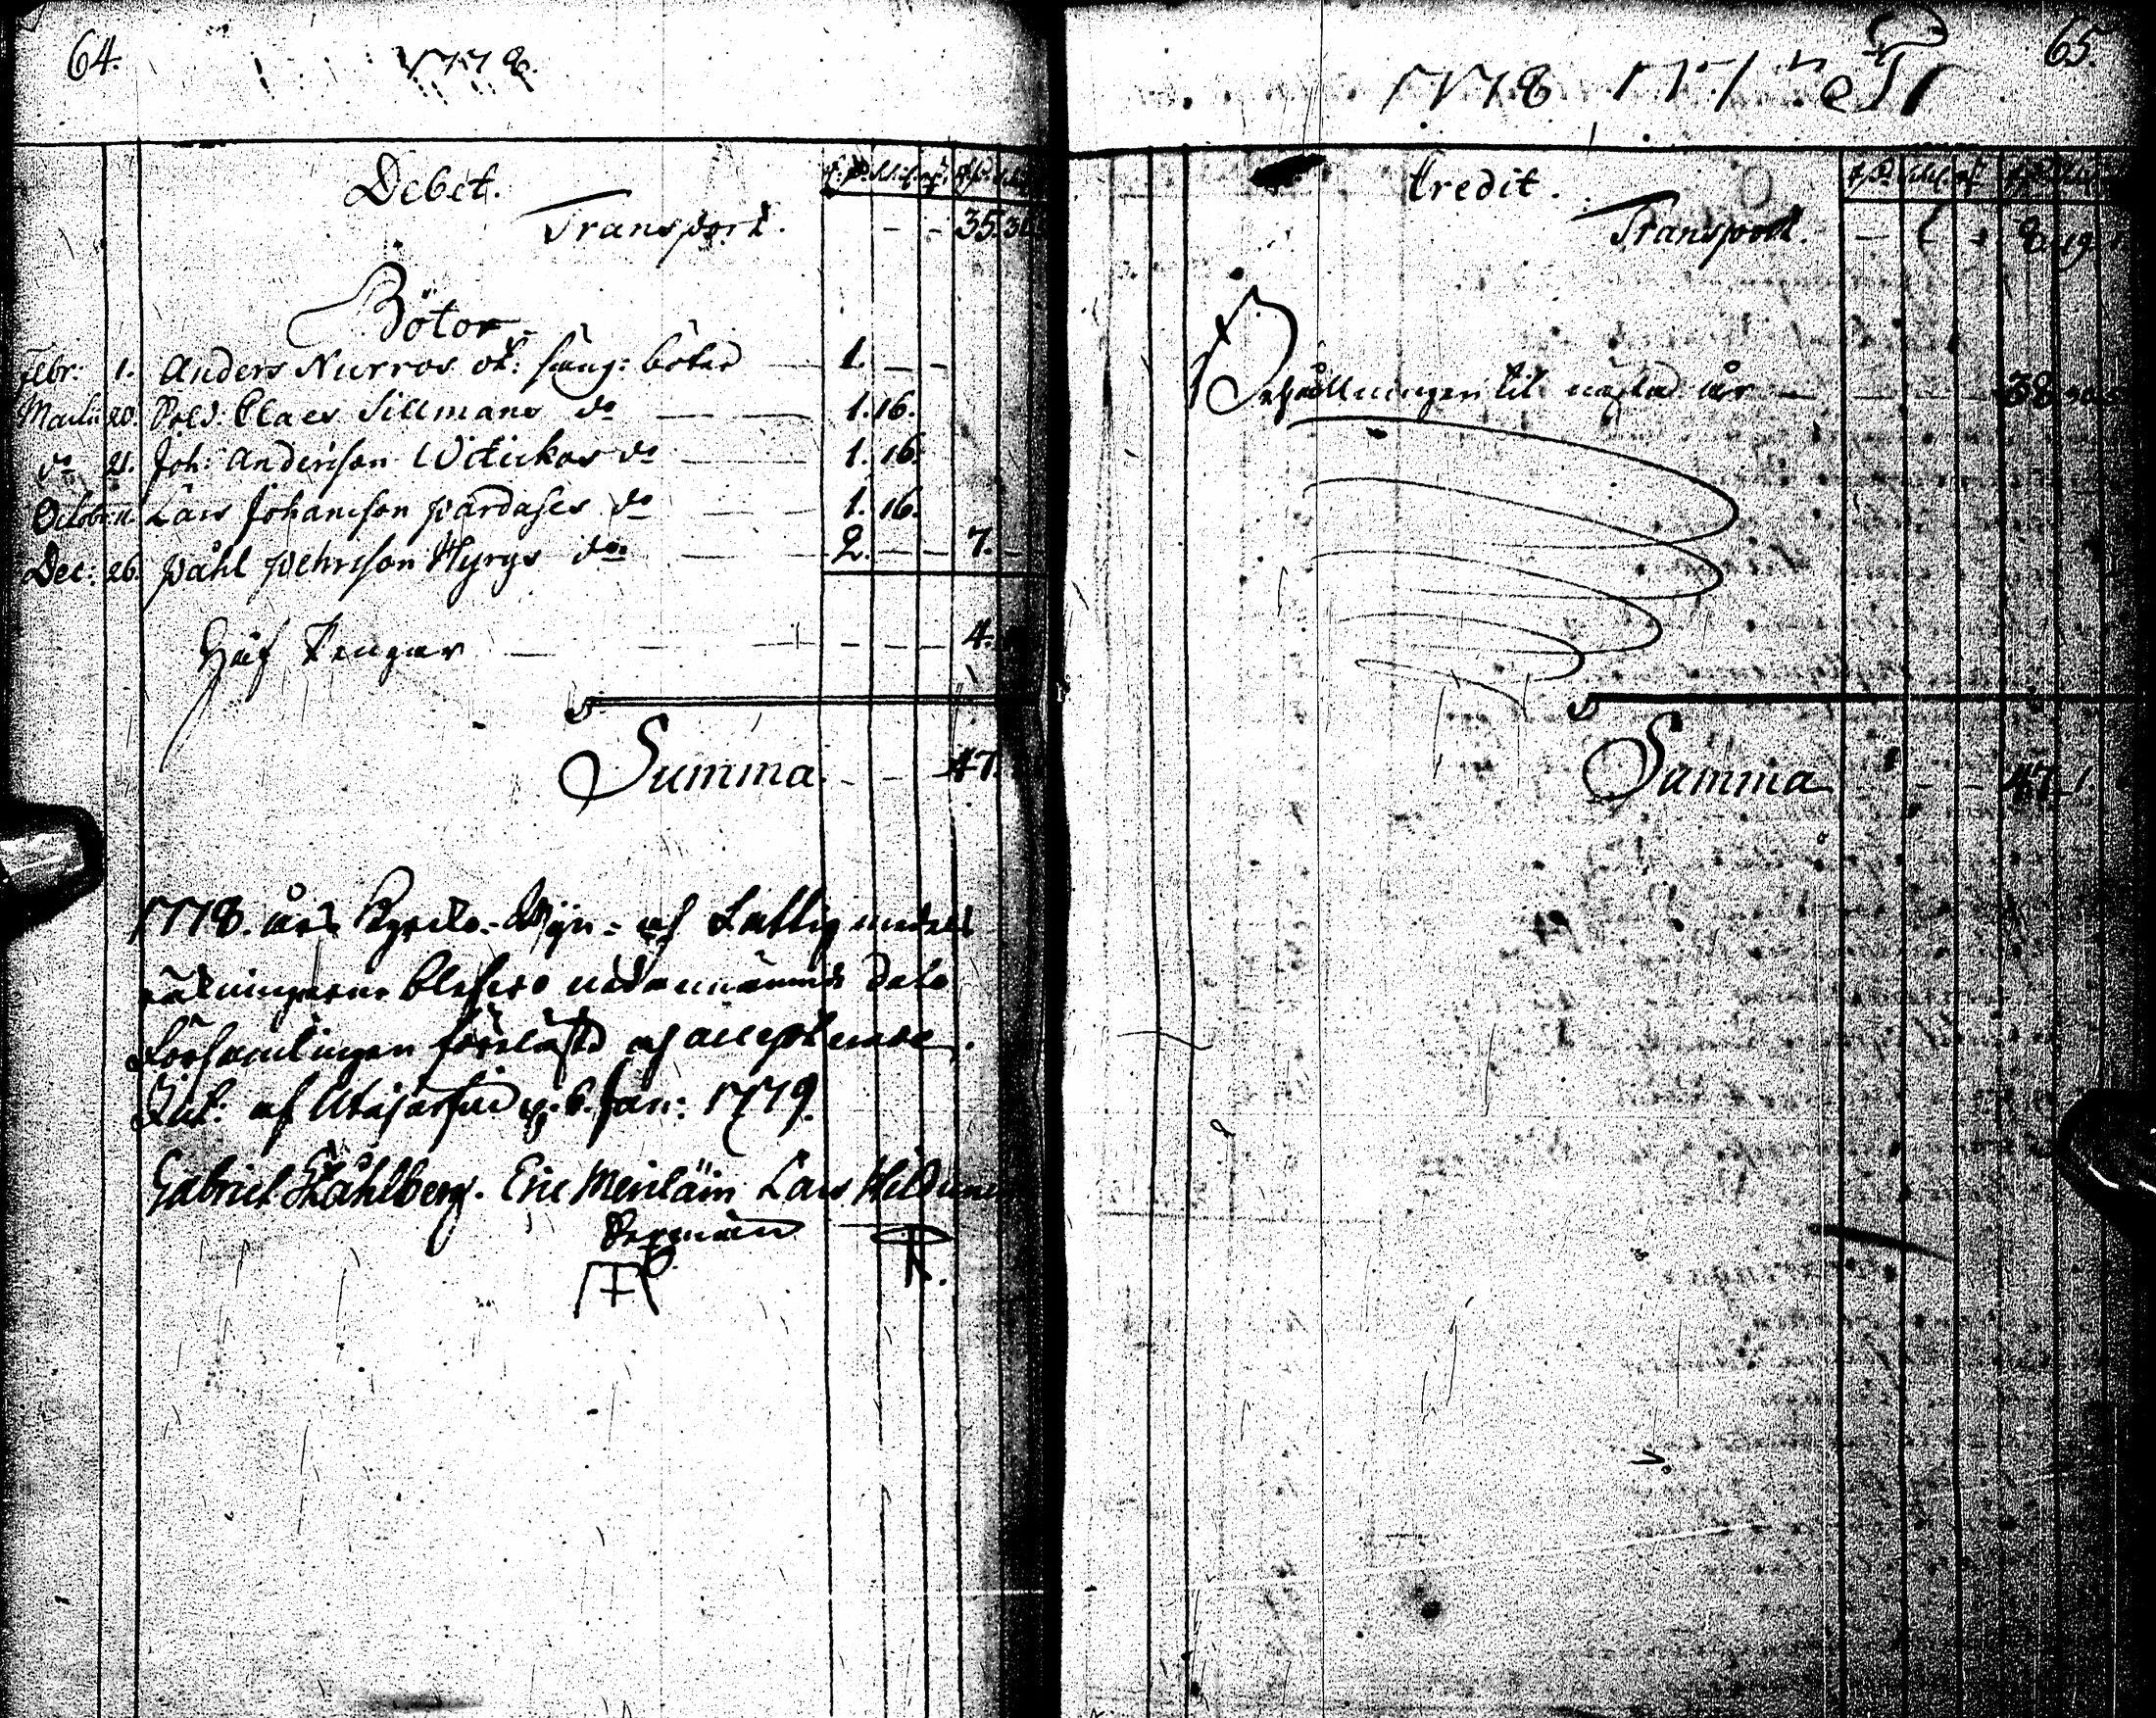 64.
1778.
Debet.
Transport. - - 35. 30
Böter
Febr: 1. Anders Nurros ot: säng: böter — 1. — –
Martii 20. Sold. Claes Sillmans do — 1. 16.
do 21. Joh: Andersson Witickas do — 1. 16.
Octobr: 11. Lars Johansson Pardases do — 1. 16.
Dec: 26. Påhl Pehrsson Hyrys do — 2. — – 7. –
Håf Pengar — – – – 4.
Summa. - - - 47.
1778. års Kyrko- Wijn- och Fattig medels
räkningarne blefwo nedannämnde dato
Församlingen föreläste och accepterade.
Dat: af Utajärfwi d. 6. Jan: 1779.
Gabriel Ståhlberg. Eric Meriläin Lars Hildunen
Sexman
65.
1778
Credit.
Transport. — 8. 19.
Behållningen til nästa år — 38. 30.
Summa - - - 47. 1.